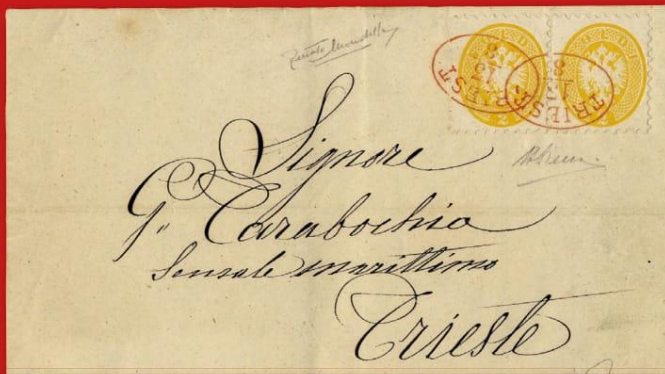 TRIEST
TRIEST
Signore
G. Tarabochia
Sensale marittimo
Trieste